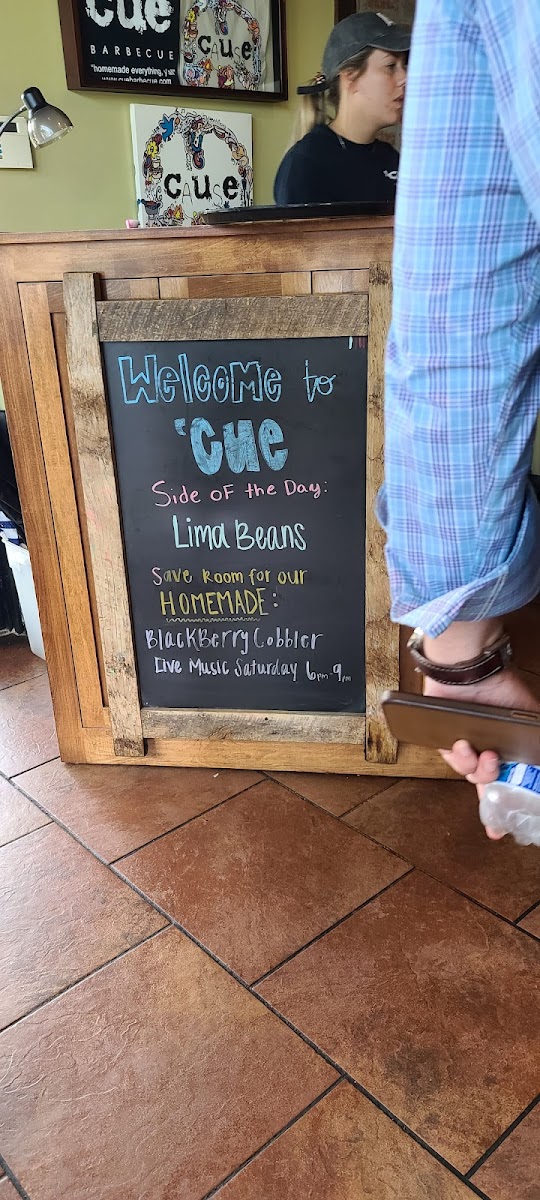 cue
BARBECUE
"homemade everything, y'all"
www.cuebarbecue.com
CAUSE
cue
CAUSE
cue
Welcome to
'Cue
Side of the Day:
Lima Beans
Save Room for our
HOMEMADE:
BlackBerry Cobbler
Live Music Saturday 6pm-9pm